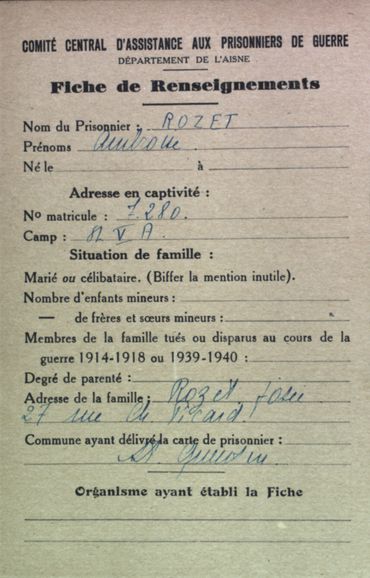 COMITÉ CENTRAL D'ASSISTANCE AUX PRISONNIERS DE GUERRE
DÉPARTEMENT DE L'AISNE
Fiche de Renseignements
Nom du Prisonnier : ROZET
Prénoms Ambroise
Né le à
Adresse en captivité :
No matricule : 7.280.
Camp : V A
Situation de famille :
Marié ou célibataire. (Biffer la mention inutile).
Nombre d'enfants mineurs :
— de frères et sœurs mineurs :
Membres de la famille tués ou disparus au cours de la
guerre 1914-1918 ou 1939-1940 :
Degré de parenté :
Adresse de la famille : Rozet
27 rue Ch Picard
Commune ayant délivré la carte de prisonnier :
St Quentin
Organisme ayant établi la Fiche